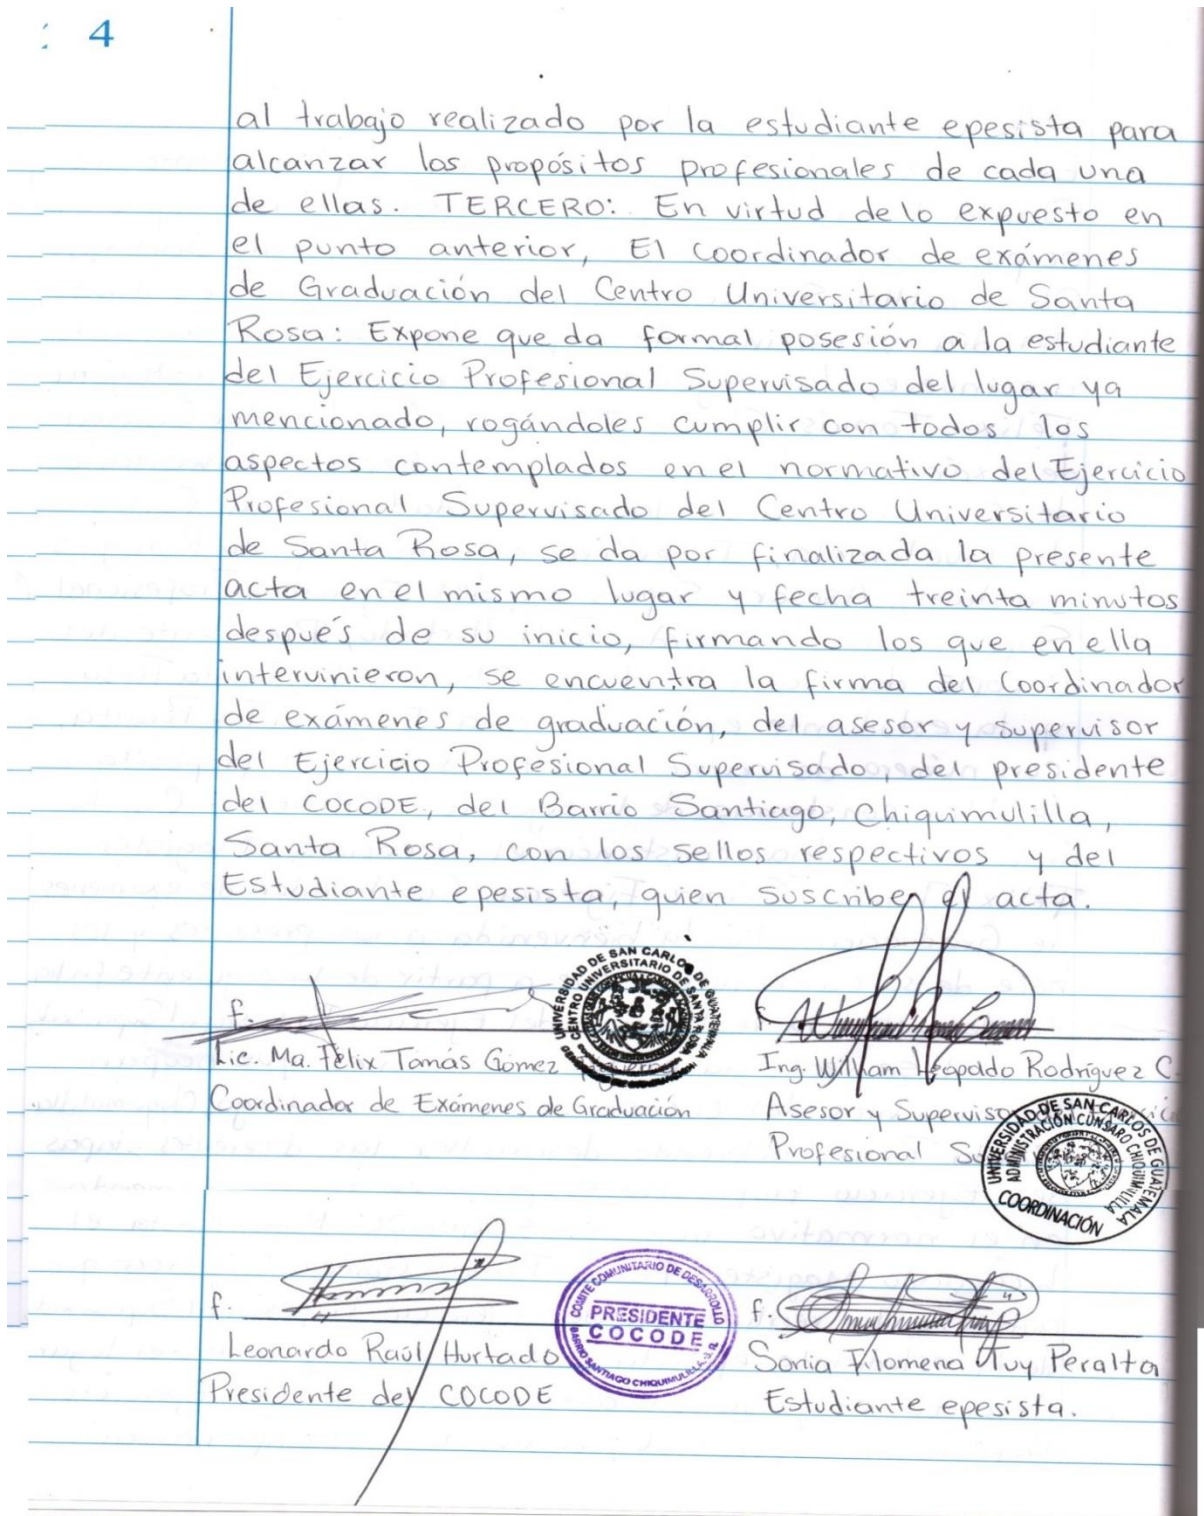 4
al trabajo realizado por la estudiante epesista para
alcanzar los propósitos profesionales de cada una
de ellas. TERCERO: En virtud de lo expuesto en
el punto anterior, El Coordinador de exámenes
de Graduación del Centro Universitario de Santa
Rosa: Expone que da formal posesión a la estudiante
del Ejercicio Profesional Supervisado del lugar ya
mencionado, rogándoles cumplir con todos los
aspectos contemplados en el normativo del Ejercicio
Profesional Supervisado del Centro Universitario
de Santa Rosa, se da por finalizada la presente
acta en el mismo lugar y fecha treinta minutos
después de su inicio, firmando los que en ella
intervinieron, se encuentra la firma del Coordinador
de exámenes de graduación, del asesor y supervisor
del Ejercicio Profesional Supervisado, del presidente
del COCODE, del Barrio Santiago, Chiquimulilla,
Santa Rosa, con los sellos respectivos y del
Estudiante epesista, quien suscriben el acta.
UNIVERSIDAD DE SAN CARLOS DE GUATEMALA
CENTRO UNIVERSITARIO DE SANTA ROSA
f.
Lic. Ma. Félix Tomás Gómez
Coordinador de Exámenes de Graduación
f.
Ing. William Leopoldo Rodríguez C.
Asesor y Supervisor
Profesional
UNIVERSIDAD DE SAN CARLOS DE GUATEMALA
ADMINISTRACIÓN CUNSARO CHIQUIMULILLA
COORDINACIÓN
f.
Leonardo Raúl Hurtado
Presidente del COCODE
COMITE COMUNITARIO DE DESARROLLO
PRESIDENTE
COCODE
BARRIO SANTIAGO CHIQUIMULILLA, S. R.
f.
Sonia Filomena Tuy Peralta
Estudiante epesista.